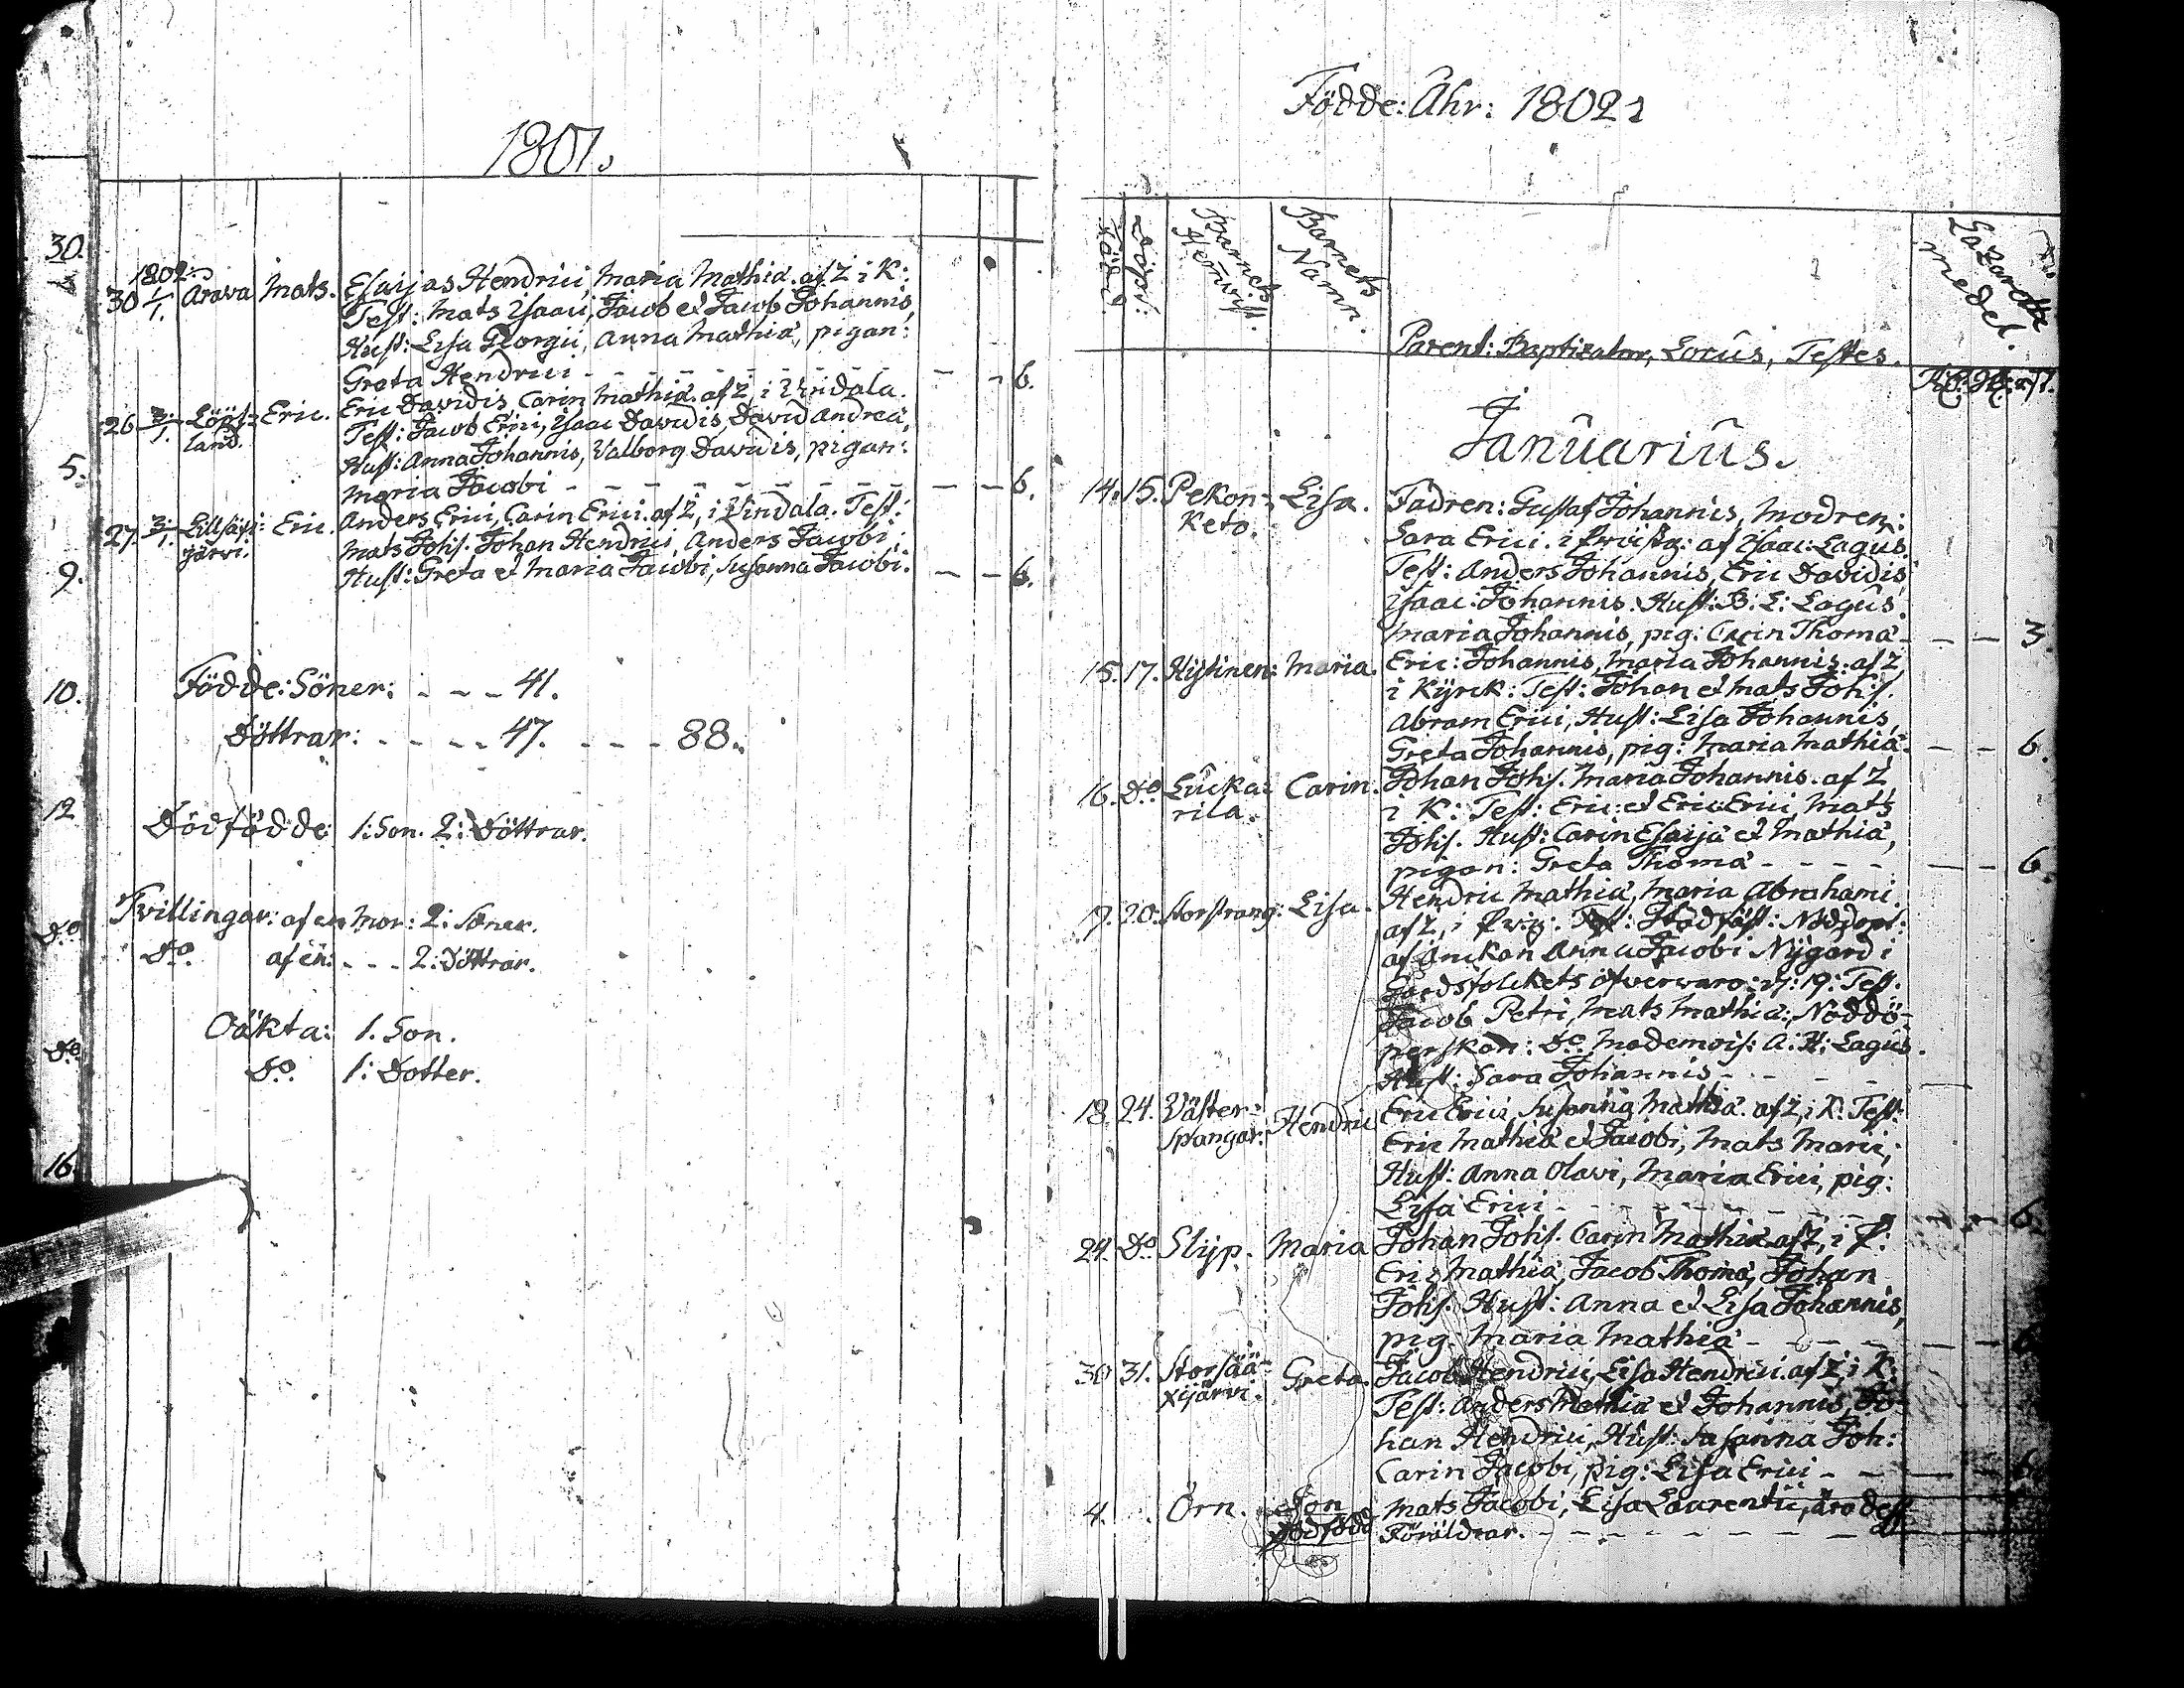 1801.
30.
1802.
30 1/1. Arava Mats. Esaijas Hendrici, Maria Mathiæ. af Z i K:
Test: Mats Isaaci, Jacob et Jacob Johannis,
Hust: Lisa Georgii, Anna Mathiæ, pigan:
Greta Hendrici - - - 6.
26 3/1. Löpö: Eric. Eric Davidis Carin Mathiæ. af Z, i Vindala.
land. Test: Jacob Erici, Isaac Davidis, David Andreæ,
Hust: Anna Johannis, Valborg Davidis, pigan:
5.
Maria Jacobi - - - 6.
27. 3/1. Eric. Anders Erici, Carin Erici. af Z, i Vindala. Test:
järvi. Mats Johs. Johan Hendrici, Anders Jacobi,
9. Hust: Greta et Maria Jacobi, Susanna Jacobi. - - 6.
10. Födde: Söner: - - - 41.
Döttrar: - - - - 47. - - - 88.
12
Dödfödde 1: Son. 2: Döttrar.
Do
Tvillingar: af en Mor: 2: Söner.
Do. af en: - - - 2: Döttrar.
Oäkta: 1. Son.
Do
Do. 1: Dotter.
16.
Födde: Åhr: 1802
Född Döpt: Barnets Hemvist. Barnets Namn. Parent: Baptizator, Locus, Testes. Lazaretts medel.
Januarius.
14. 15. Pekon- Lisa. Fadren: Gustaf Johannis, Modren:
keto. Sara Erici. af Isaac: Lagus.
Test: Anders Johannis, Eric Davidis
Isaac: Johannis. Hust: B: L: Lagus,
Maria Johannis, pig: Carin Thomæ - - - 3.
15. 17. Hystinen: Maria. Eric: Johannis, Maria Johannis. af Z
i Kyrck: Test: Johan et Mats Johs.
Abram Erici, Hust: Lisa Johannis,
Greta Johannis, pig: Maria Mathiæ. - - 6.
16. Do Lucka: Carin. Johan Johs. Maria Johannis. af Z
rila. i K: Test: Eric: et Eric Erici, Mats
Johs. Hust: Carin Esaijæ et Mathiæ,
pigan: Greta Thomæ - - - - 6.
19. 20. Storstrang: Lisa. Hendric Mathiæ, Maria Abrahami.
af Z, i Stadfäst: Nöddopt:
af Änckan Anna Jacobi Nygård i
Gårdsfolckets öfvervaro: d: 19: Test.
Jacob Petri, Mats Mathiæ, Nöddö-
perskan: Do Mademois: A: H: Lagus.
Hust: Sara Johannis - - - -
18. 24. Väster- Hendric Eric Erici, Susanna Mathiæ. af Z, i K: Test:
spangar: Eric Mathiæ et Jacobi, Mats Marci,
Hust: Anna Olavi, Maria Erici, pig:
Lisa Erici - - - 6.
24. Do Slyp. Maria Johan Johs. Carin Mathiæ af Z, i
Eric Mathiæ, Jacob Thomæ, Johan
Johs. Hust: Anna et Lisa Johannis,
pig: Maria Mathiæ - - - - 6
30 31. Storsää- Greta. Jacob Hendrici, Lisa Hendrici. af Z, i K:
xijärvi. Test: Anders Mathiæ et Johannis, Jo-
han Hendrici, Hust: Susanna Joh:
Carin Jacobi, pig: Lisa Erici - - - 6
4. Örn. Son Mats Jacobi, Lisa Laurentii, äro dess
Dödfödd Föräldrar. - - - -